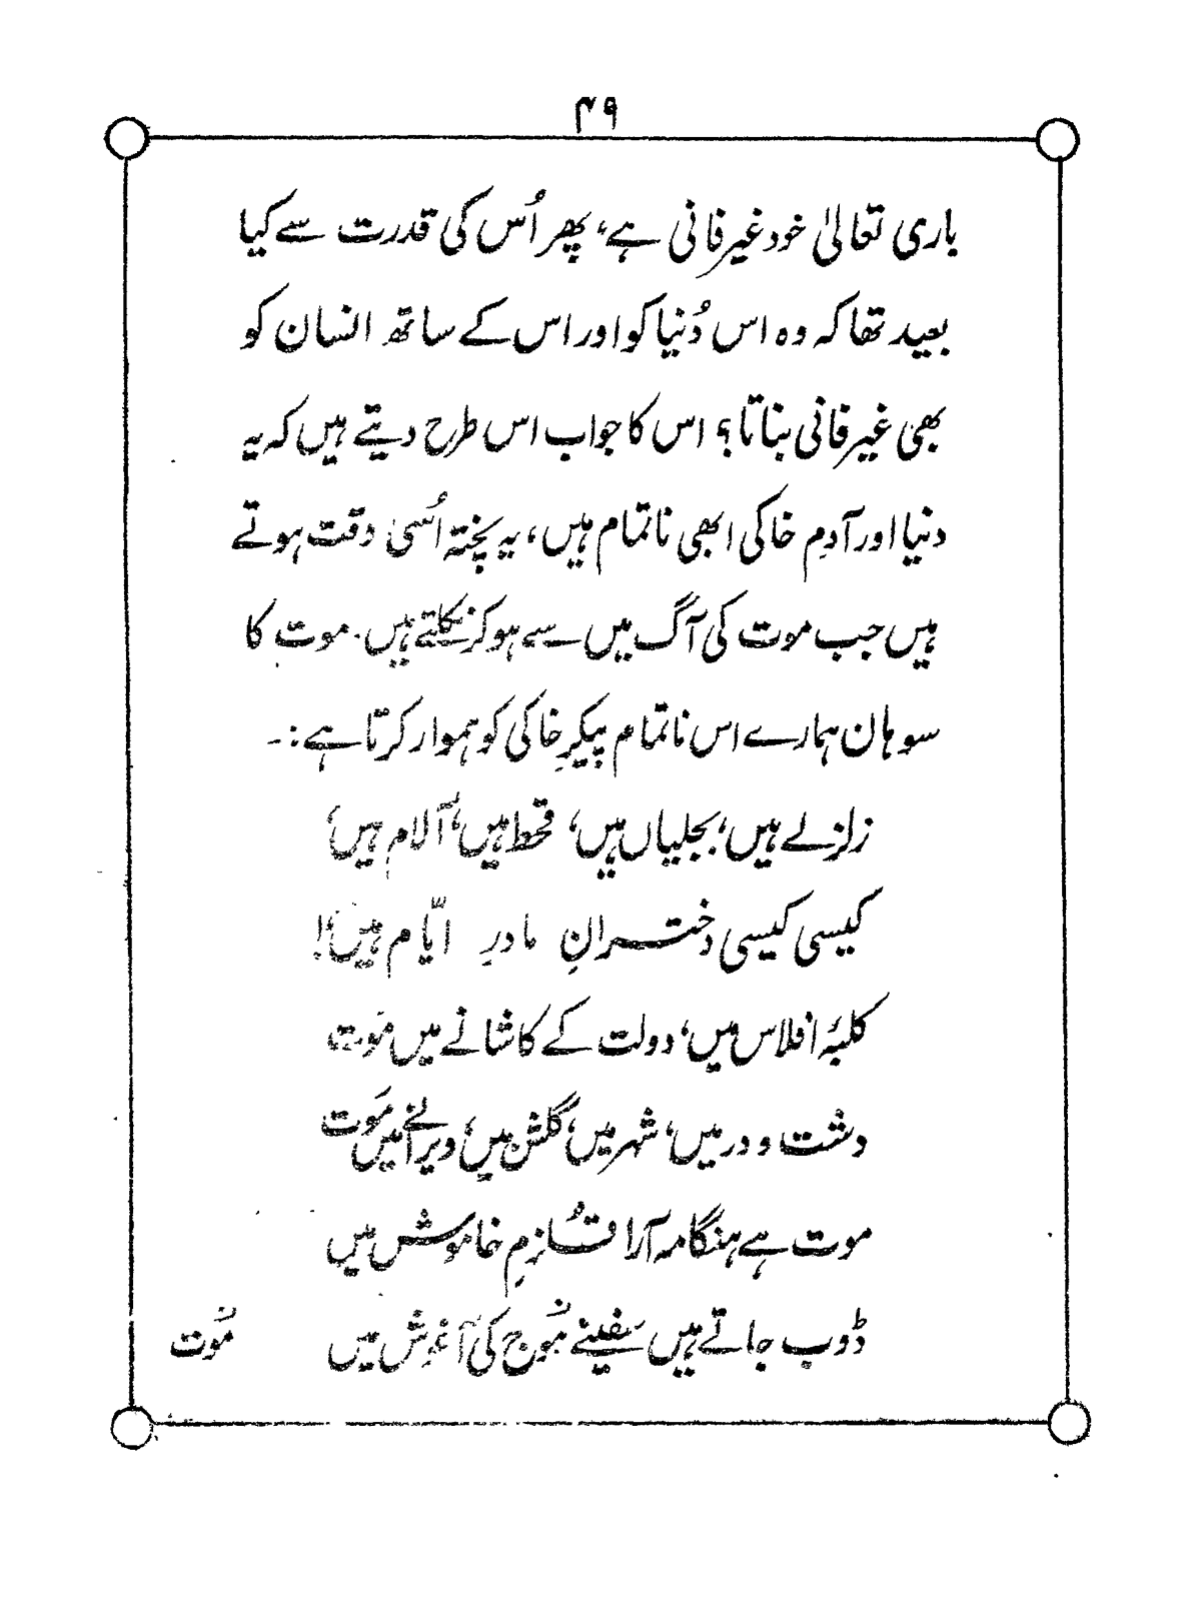 ۴۹
باری تعالیٰ خود غیر فانی ہے، پھر اُس کی قدرت سے کیا
بعید تھا کہ وہ اس دُنیا کو اور اس کے ساتھ انسان کو
بھی غیر فانی بناتا؟ اس کا جواب اس طرح دیتے ہیں کہ یہ
دنیا اور آدمِ خاکی ابھی ناتمام ہیں، یہ پختہ اُسی وقت ہوتے
ہیں جب موت کی آگ میں سے ہو کر نکلتے ہیں۔ موت کا
سوہان ہمارے اس ناتمام پیکرِ خاکی کو ہموار کرتا ہے :۔
زلزلے ہیں، بجلیاں ہیں، قحط ہیں، آلام ہیں،
کیسی کیسی دخترانِ مادرِ ایّام ہیں!
کلبۂ افلاس میں، دولت کے کاشانے میں مَوت
دشت و در میں، شہر میں، گلشن میں، ویرانے میں مَوت
موت ہے ہنگامہ آرا قُلزمِ خاموش میں
ڈوب جاتے ہیں سفینے مَوج کی آغوش میں
مَوت